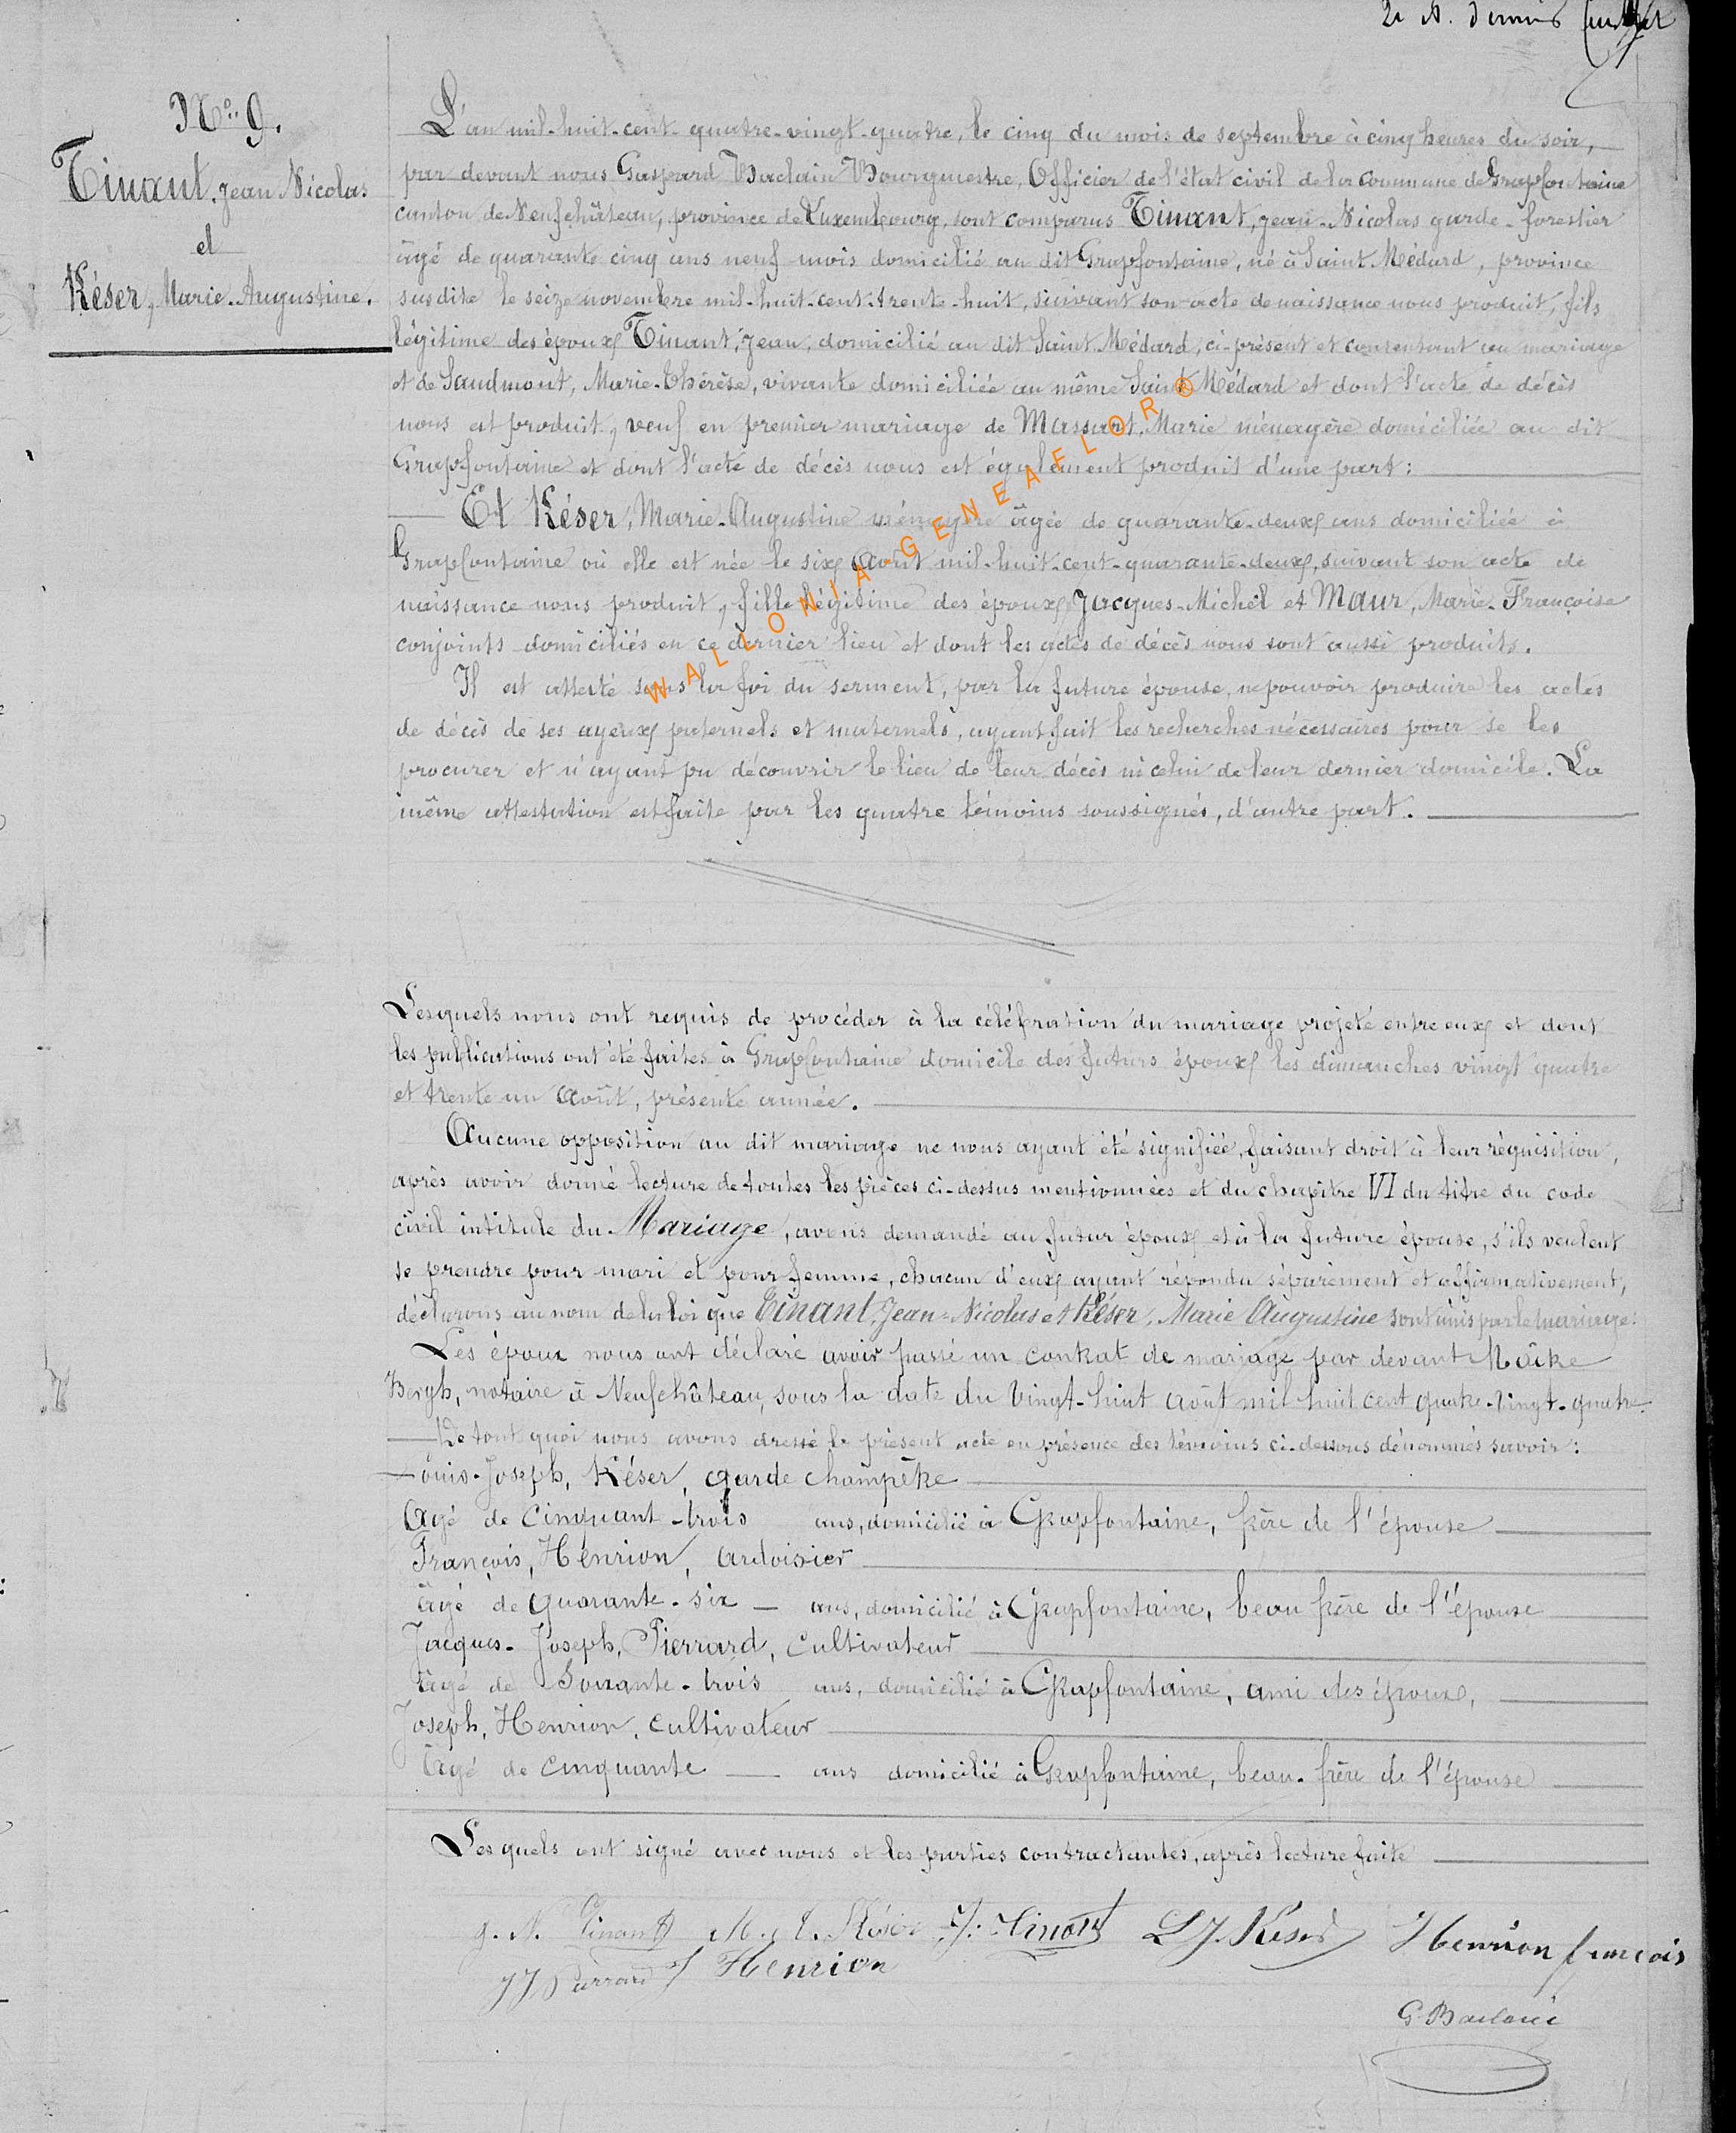 No. 9.
Tinant, Jean Nicolas
et
Késer, Marie-Augustine.
L'an mil-huit-cent-quatre-vingt-quatre, le cinq du mois de septembre à cinq heures du soir,
par devant nous Gaspard Baclain Bourgmestre, Officier de l'état civil de la commune de Grapfontaine
canton de Neufchâteau, province de Luxembourg, sont comparus Tinant, Jean-Nicolas garde-forestier
âgé de quarante cinq ans neuf mois domicilié au dit Grapfontaine, né à Saint-Médard, province
susdite le seize novembre mil-huit-cent-trente-huit, suivant son acte de naissance nous produit, fils
légitime des époux Tinant, Jean, domicilié au dit Saint-Médard, ci-présent et consentant au mariage
et de Saudmont, Marie-Thérèse, vivante domiciliée au même Saint Médard et dont l'acte de décès
nous est produit, veuf en premier mariage de Massart, Marie ménagère domiciliée au dit
Grapfontaine et dont l'acte de décès nous est également produit d'une part:
Et Késer, Marie-Augustine ménagère âgée de quarante-deux ans domiciliée à
Grapfontaine où elle est née le six Août mil-huit-cent-quarante-deux, suivant son acte de
naissance nous produit, fille légitime des époux Jacques-Michel et Maur, Marie-Françoise
conjoints domiciliés en ce dernier lieu et dont les actes de décès nous sont aussi produits.
Il est attesté sous la foi du serment, par la future épouse, ne pouvoir produire les actes
de décès de ses ayeux paternels et maternels, ayant fait les recherches nécessaires pour se les
procurer et n'ayant pu découvrir le lieu de leur décès ni celui de leur dernier domicile. La
même attestation est faite par les quatre témoins soussignés, d'autre part.
WALLONIA-GENEAFLOR®
Lesquels nous ont requis de procéder à la célébration du mariage projeté entre eux et dont
les publications ont été faites à Grapfontaine domicile des futurs époux les dimanches vingt quatre
et trente un Août, présente année.
Aucune opposition au dit mariage ne nous ayant été signifiée, faisant droit à leur réquisition,
après avoir donné lecture de toutes les pièces ci-dessus mentionnées et du chapitre VI du titre du code
civil intitulé du Mariage, avons demandé au futur époux et à la future épouse, s'ils veulent
se prendre pour mari et pour femme, chacun d'eux ayant répondu séparément et affirmativement,
déclarons au nom de la loi que Tinant, Jean-Nicolas et Késer, Marie Augustine sont unis par le mariage:
Les époux nous ont déclaré avoir passé un contrat de mariage par devant Maître
Bergh, notaire à Neufchâteau, sous la date du vingt-huit août mil huit cent quatre-vingt-quatre.
De tout quoi nous avons dressé le présent acte en présence des témoins ci-dessous dénommés savoir:
Louis-Joseph, Késer, garde champêtre
Agé de cinquant-trois ans, domicilié à Grapfontaine, frère de l'épouse
François, Henrion, ardoisier
âgé de quarante-six ans, domicilié à Grapfontaine, beau frère de l'épouse
Jacques-Joseph, Pierrard, cultivateur
âgé de Soixante-trois ans, domicilié à Grapfontaine, ami des époux,
Joseph, Henrion, cultivateur
âgé de cinquante ans domicilié à Grapfontaine, beau-frère de l'épouse
Lesquels ont signé avec nous et les parties contractantes, après lecture faite
J. N. Tinant M. A. Késer J. Tinant L J Késer Henrion francois
J J Pierrard J Henrion
G. Baclain